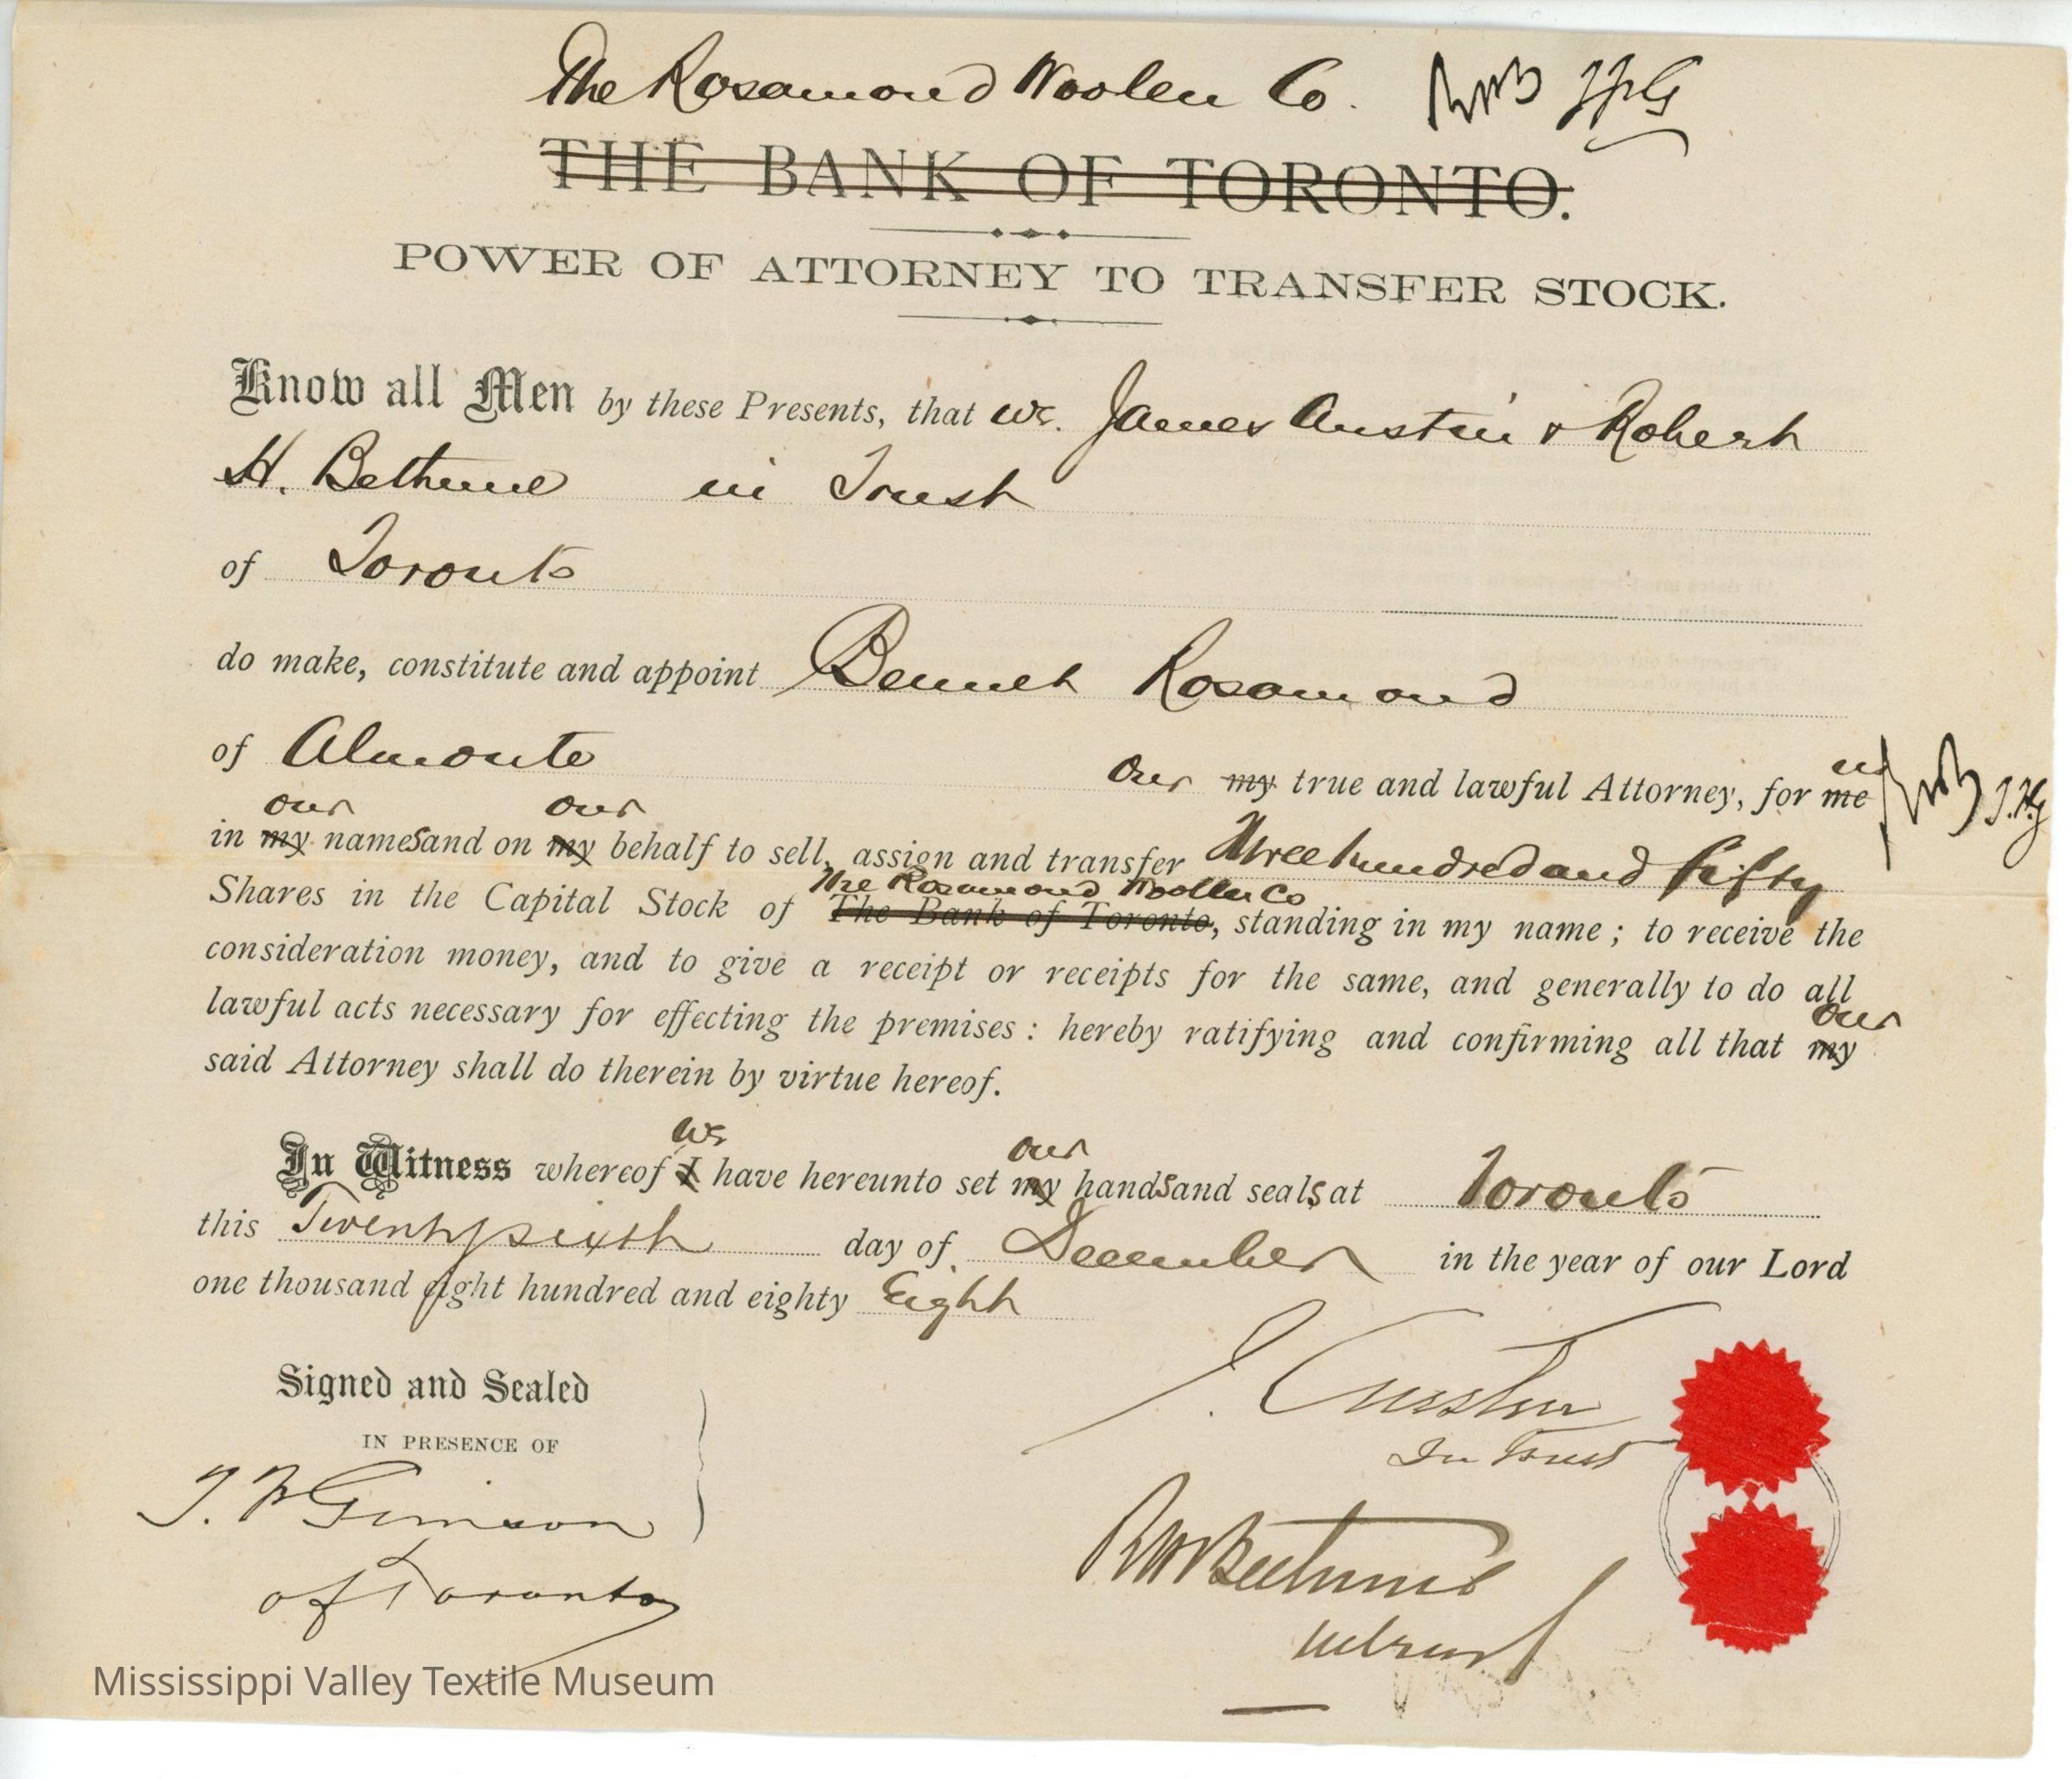 The Rosamond Woolen Co. RHB
THE BANK OF TORONTO.
POWER OF ATTORNEY TO TRANSFER STOCK.
Know all Men by these Presents, that we. James Austin & Robert
H. Bethune in Trust
of Toronto
do make, constitute and appoint Bennett Rosamond
of Almonte our my true and lawful Attorney, for me us RHB
our our
in my names and on my behalf to sell, assign and transfer Three hundred and fifty
The Rosamond Woollen Co
Shares in the Capital Stock of The Bank of Toronto, standing in my name; to receive the
consideration money, and to give a receipt or receipts for the same, and generally to do all
lawful acts necessary for effecting the premises: hereby ratifying and confirming all that my our
said Attorney shall do therein by virtue hereof.
we our
In Witness whereof I have hereunto set my hands and seals at Toronto
this Twenty sixth day of December in the year of our Lord
one thousand eight hundred and eighty Eight
Signed and Sealed
IN PRESENCE OF
J. Austin
In Trust
of Toronto
RHBethune
in trust
Mississippi Valley Textile Museum